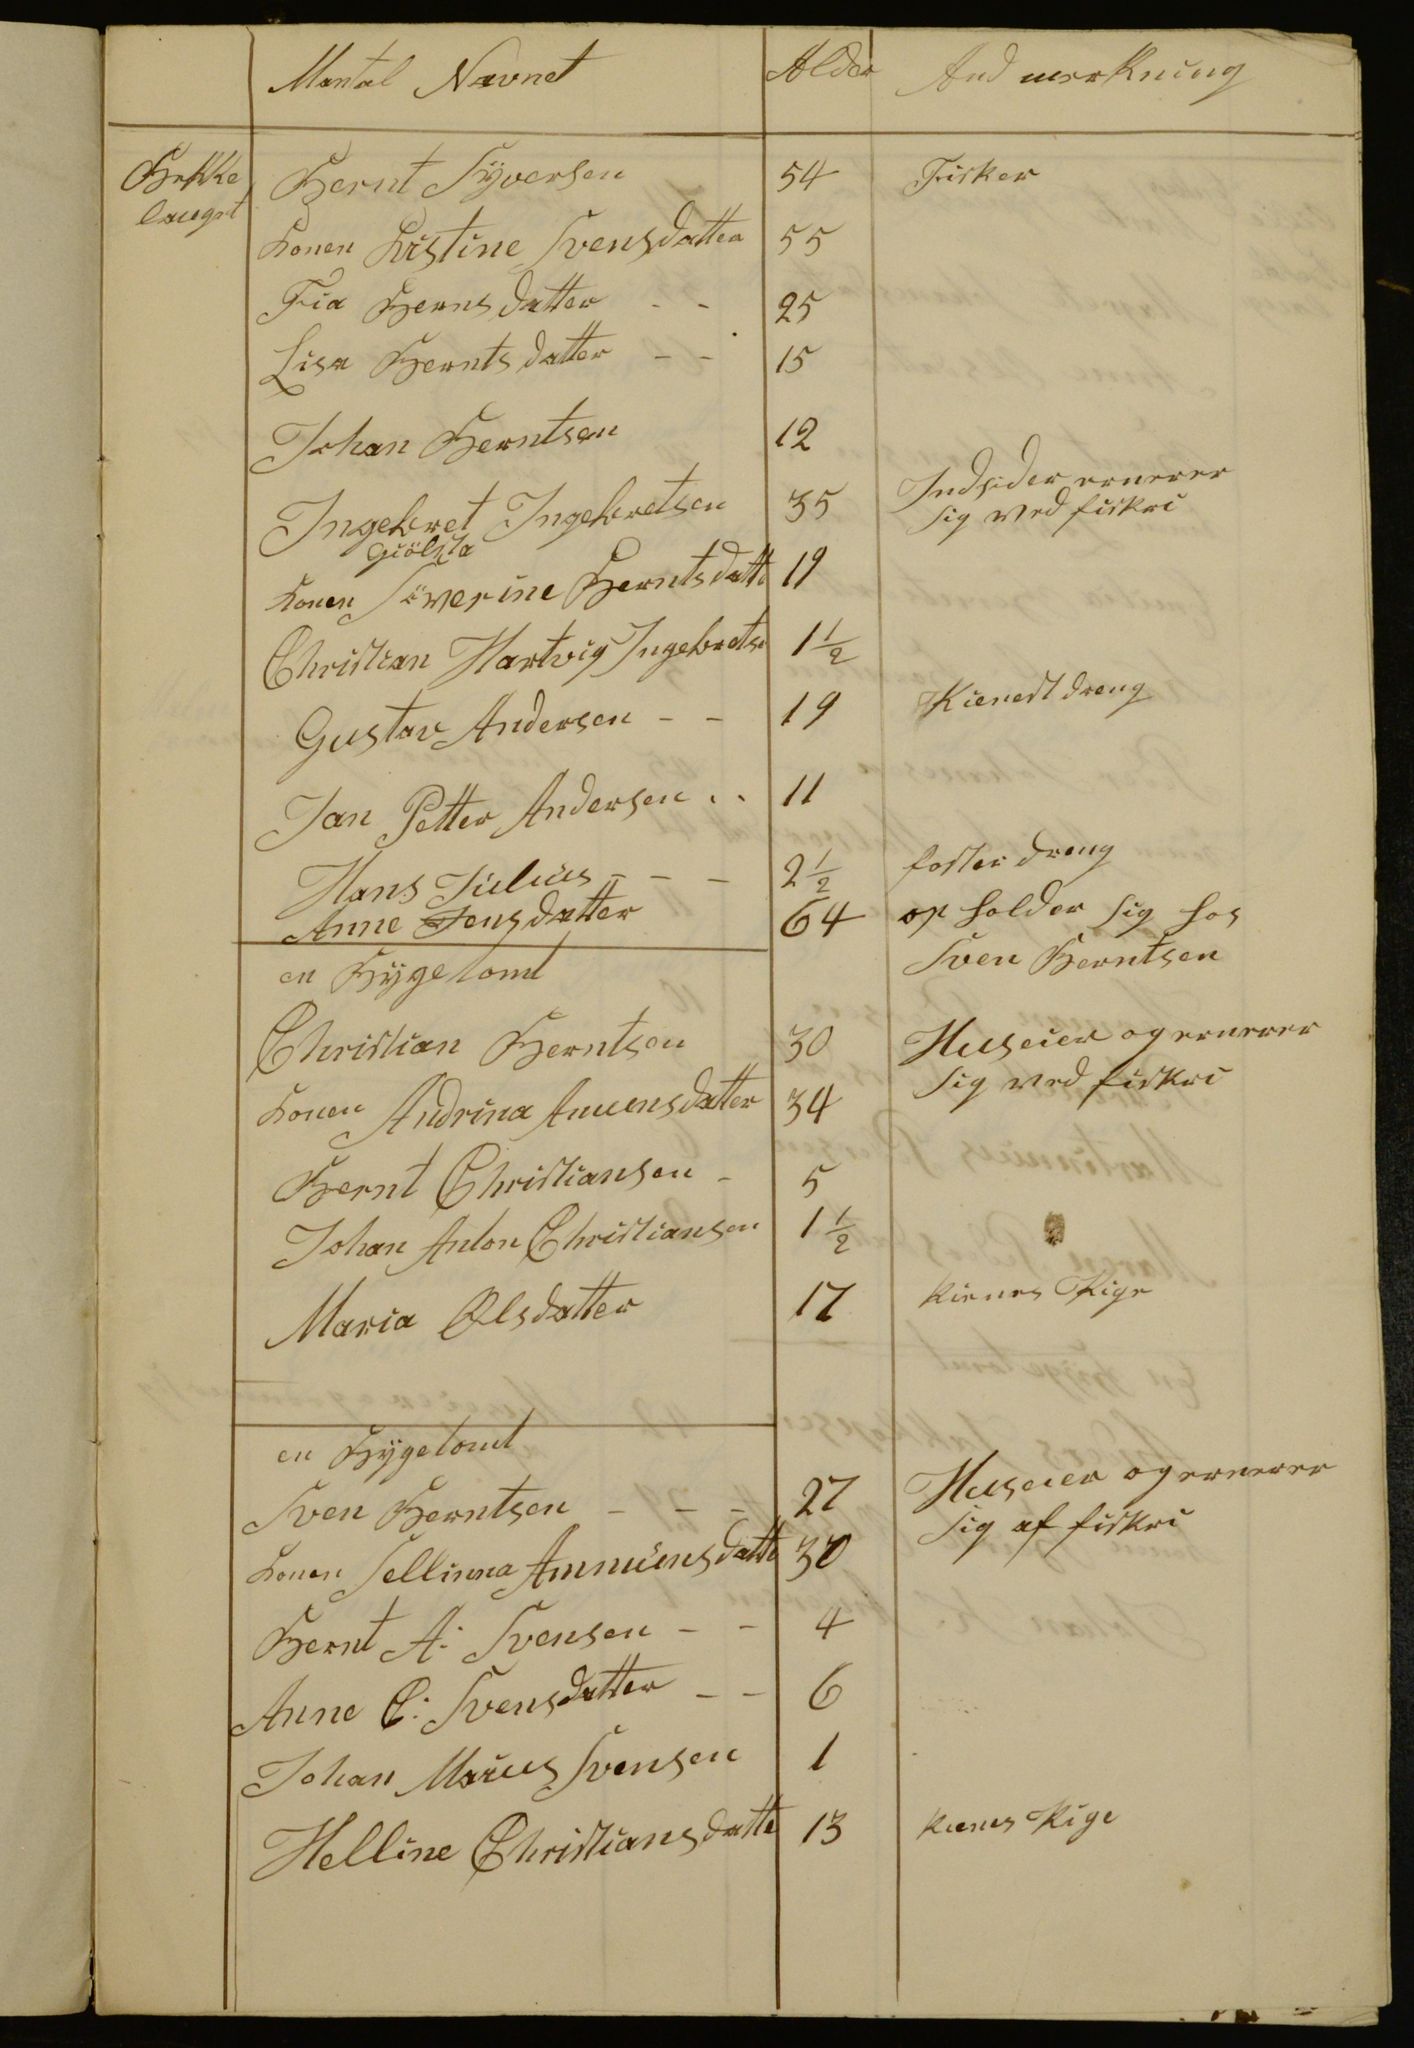 Mantal Navnet Alder And merkning
Bekke Bernt Syversen 54 Fisker
lauget
Konen Kistine Svensdatter 55
Fia Bernsdatter - - 25
Lisa Berntsdatter - - 15
Johan Berntsen 12
Ingebret Ingebretsen 35 Indsider ernerer
sig ved fiskri
Giölsta
Konen Säverine Berntsdatt 19
Christian Hartvig Ingebrets 1 1/2
Gustav Andersen - - 19 Kienest dreng
Jan Petter Andersen . . 11
Hans Julius - - - 2 1/2 foster dreng
Anne Jensdatter 64 op holder sig hos
Sven Berntsen
en Bygetomt
Christian Berntsen 30 Huseier og ernerer
sig ved fiskri
Konen Andrina Amunsdatter 34
Bernt Christiansen - 5
Johan Anton Christiansen 1 1/2
Maria Olsdatter 17 kienes Pige
en Bygetomt
Sven Berntsen - - - 27 Huseier og ernerer
sig af fiskri
Konen Sellinna Ammunsdatte 30
Bernt A: Svensen - - 4
Anne C: Svensdatter - - 6
Johan Marius Svensen 1
Helline Christiansdatte 13 kienes Pige